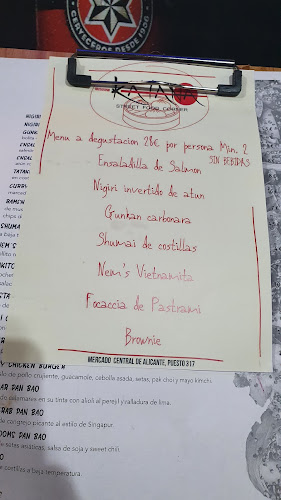 CERVECEROS DESDE 1890
STREET FOOD CORNER
Menu a degustacion 28€ por persona Min. 2
SIN BEBIDAS
Ensaladilla de Salmon
Nigiri invertido de atun
Gunkan carbonara
Shumai de costillas
Nem's Vietnamita
Focaccia de Pastrami
Brownie
MERCADO CENTRAL DE ALICANTE, PUESTO 317
NIGIRI
NIGIRI
CHICKEN BURGER
de pollo crujiente, guacamole, cebolla asada, setas, pak choi y mayo kimchi.
PAN BAO
calamares en su tinta con alioli al perejil y ralladura de lima.
PAN BAO
cangrejo picante al estilo de Singapur.
PAN BAO
setas asiáticas, salsa de soja y sweet chili.
costillas a baja temperatura.